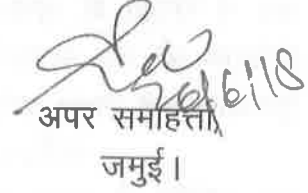 26/6/18
अपर समाहर्त्ता
जमुई।